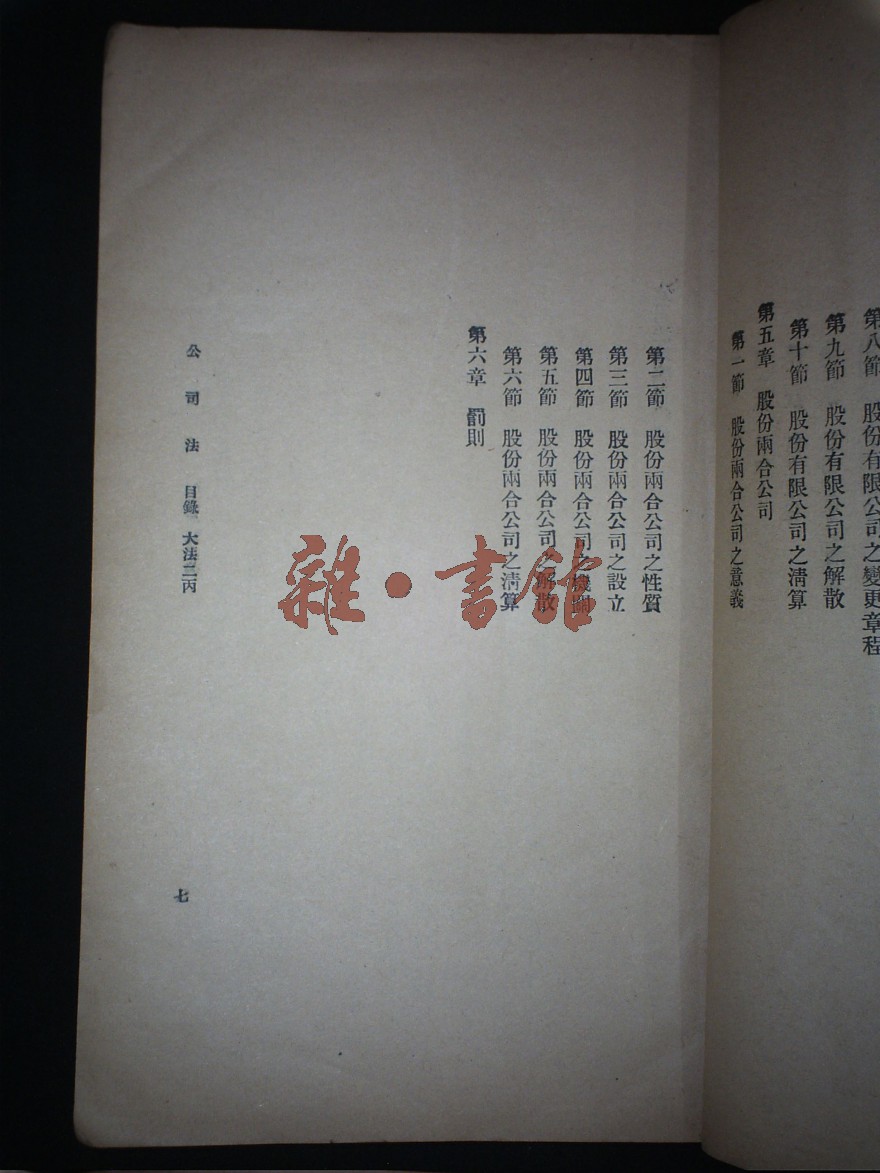 第八節　股份有限公司之變更章程
第九節　股份有限公司之解散
第十節　股份有限公司之淸算
第五章　股份兩合公司
第一節　股份兩合公司之意義
第二節　股份兩合公司之性質
第三節　股份兩合公司之設立
第四節　股份兩合公司之機關
第五節　股份兩合公司之解散
第六節　股份兩合公司之淸算
第六章　罰則
公司法　目錄　大法二丙
七
雜·書館